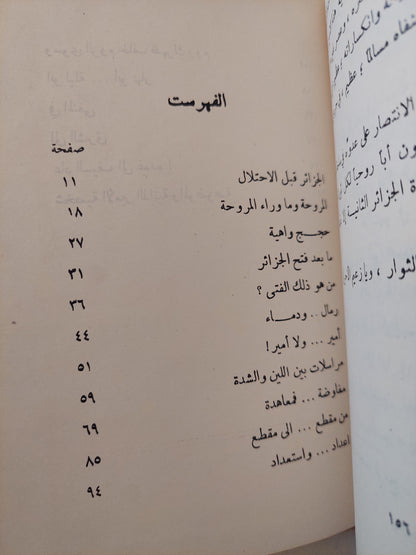 الفهرست
صفحة
الجزائر قبل الاحتلال ١١
المروحة وما وراء المروحة ١٨
حجج واهية ٢٧
ما بعد فتح الجزائر ٣١
من هو ذلك الفتى ؟ ٣٦
رمال .. ودماء ٤٤
أمير ... ولا أمير ! ٥١
مراسلات بين اللين والشدة ٥٩
مفاوضة ... فمعاهدة ٦٩
من مقطع ... الى مقطع ٨٥
اعداد ... واستعداد ٩٤
الانتصار على عدوه
أباً روحياً
الجزائر الثانية
الثوار ، ويا زعيم
١٥٦